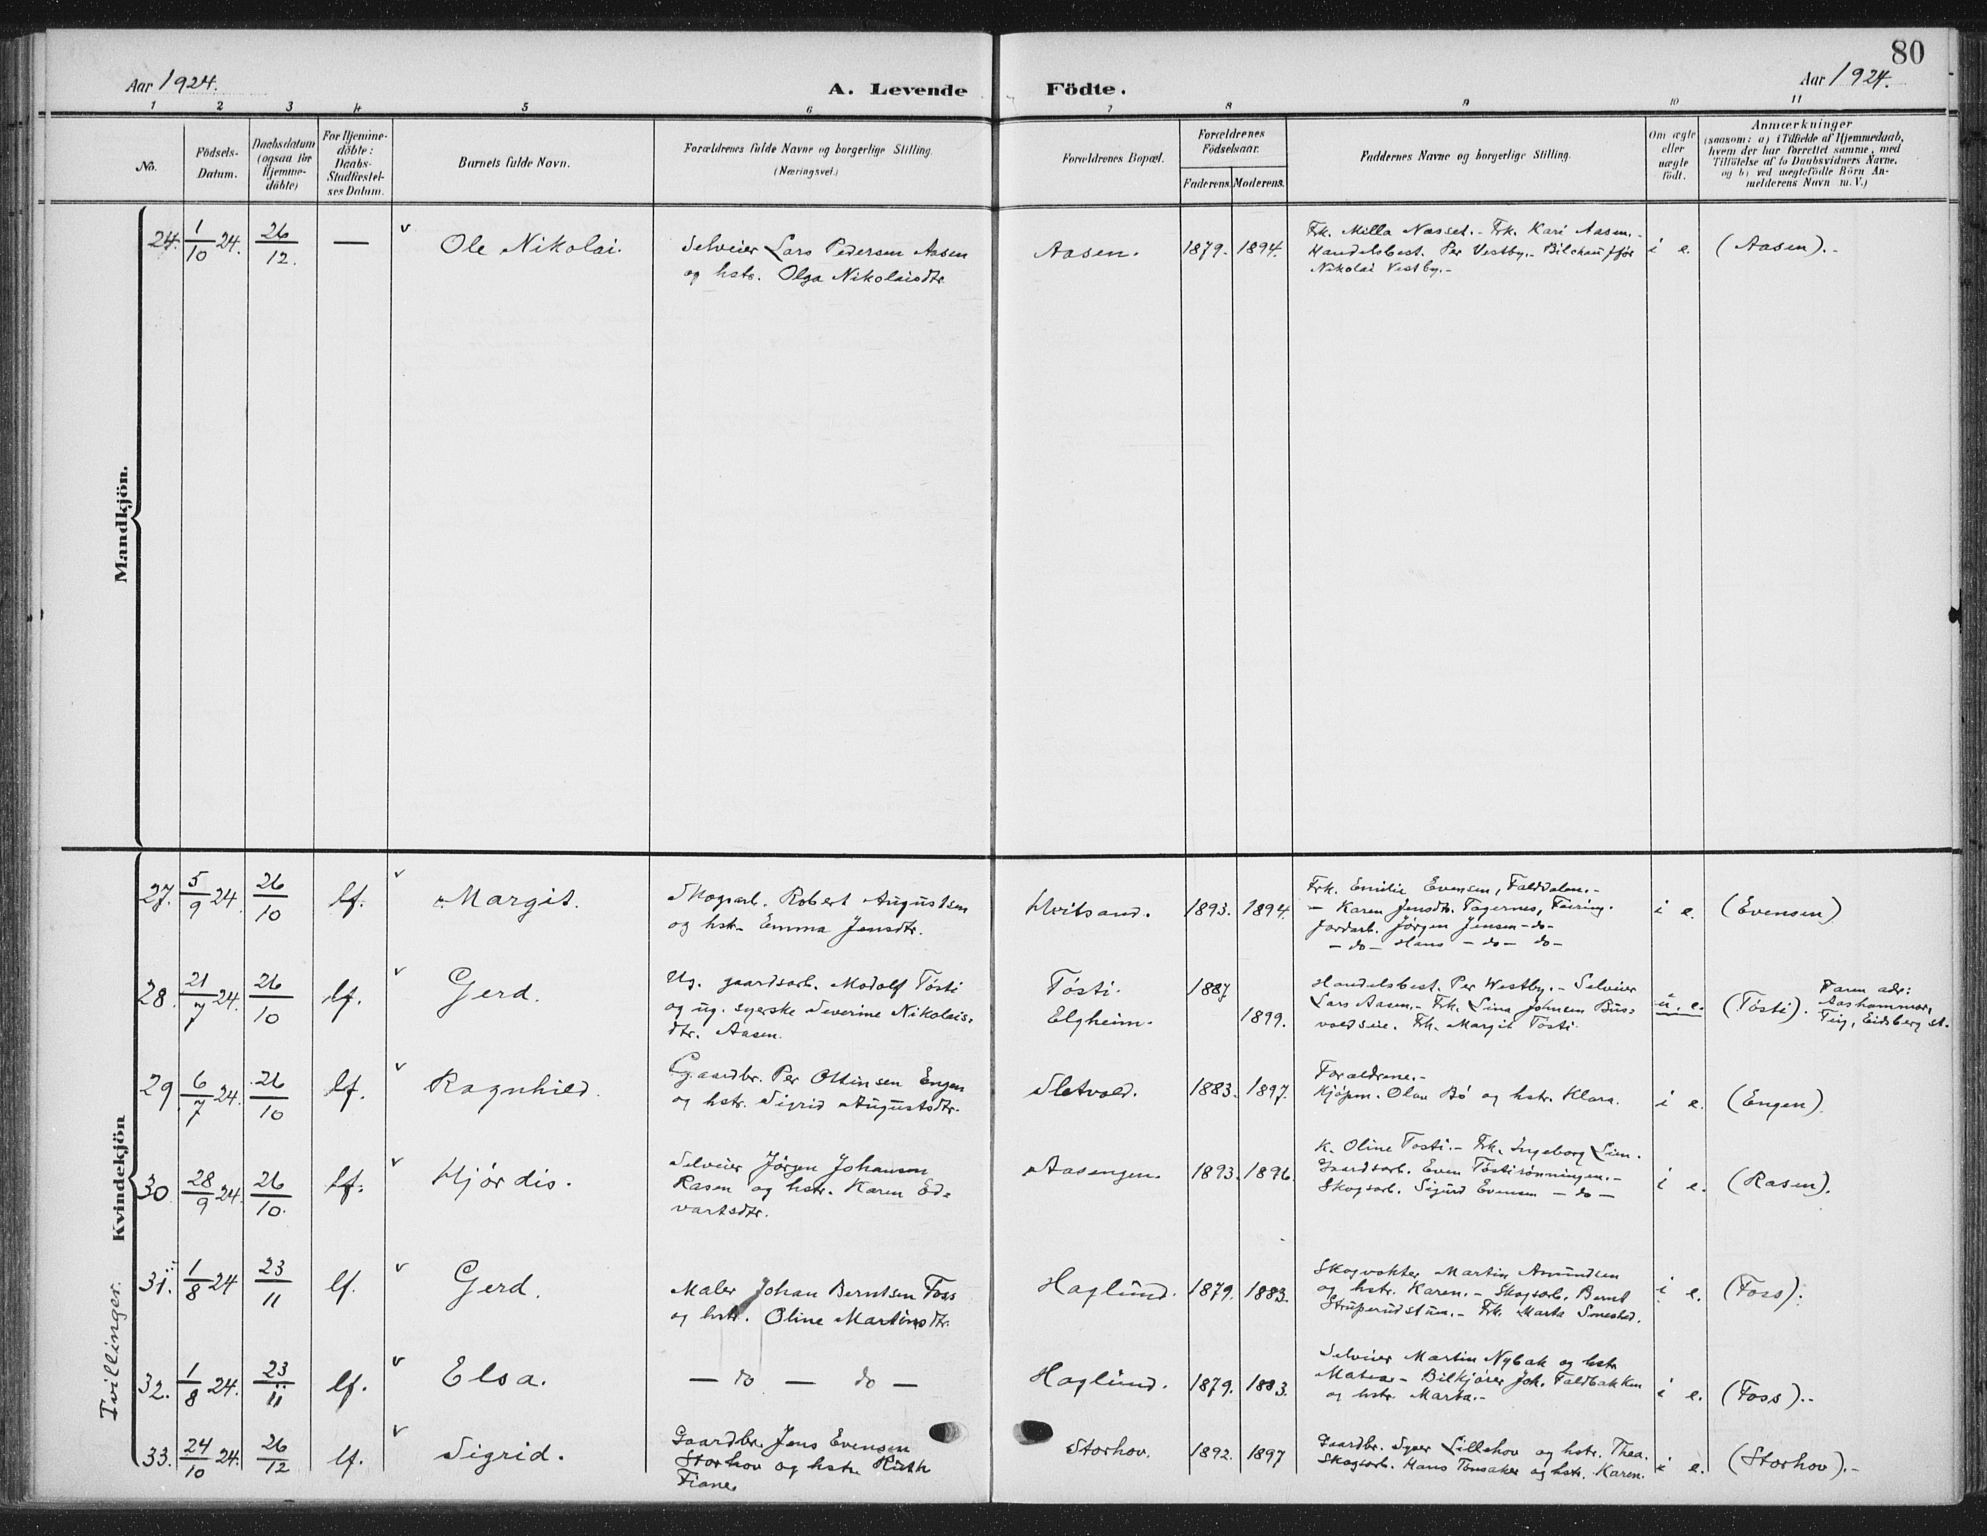 80
Aar 1924.
A. Levende
Födte.
Aar 1924.
1 2 3 4 5 6 7 8 9 10 11
No.
Födsels-
Datum.
Daabsdatum
(ogsaa for
Hjemme-
döbte)
For Hjemme-
döbte:
Daabs-
Stadfæstel-
ses Datum.
Barnets fulde Navn.
Forældrenes fulde Navne og borgerlige Stilling.
(Næringsvei.)
Forældrenes Bopæl.
Forældrenes
Födselsaar.
Faderens. Moderens.
Faddernes Navne og borgerlige Stilling.
Om ægte
eller
uægte
födt.
Anmærkninger
(saasom: a) i Tilfælde af Hjemmedaab,
hvem der har forrettet samme, med
Tilföielse af to Daabsvidners Navne.
og b) ved uægtefödte Börn An-
melderens Navn m. V.)
Mandkjön.
24. 1/10 24. 26/12. — v Ole Nikolai.
Selveier Lars Pedersen Aasen
og hstr. Olga Nikolaisdtr.
Aasen. 1879. 1894.
Frk. Milla Næsset. - Frk. Kari Aasen. -
Handelsbest. Per Vestby. - Bilchauffør
Nikolai Vestby. -
i e. (Aasen). -
Kvindekjön
27. 5/9 24. 26/10 lf. v Margit.
Skogsarb. Robert Augustsen
og hstr. Emma Jensdtr.
Hvitsand. 1893. 1894.
Frk. Emilie Evensen, Faldsalen. -
— Karen Jensdtr. Tagernes, Feiring.
Jordarb. Jørgen Jensen — do —
— do — Hans — do — do —
i e. (Evensen)
28. 21/7 24. 26/10 lf. v Gerd.
Ug. gaardsarb. Modolf Tøsti
og ug. syerske Severine Nikolais-
dtr. Aasen.
Tøsti. 1887
Elgheim. 1899.
Handelsbest. Per Westby. - Selveier
Lars Aasen. - Frk. Lina Johnsen Bus-
voldseie. Frk. Margit Tøsti.
u. e. (Tøsti).
Faren adr:
Aashammar,
Teig, Eidsberg st.
29 6/7 24. 26/10 lf. v Ragnhild.
Gaardbr. Per Ottinsen Engen
og hstr. Sigrid Augustsdtr.
Sletvold. 1883. 1897.
Forældrene. -
Kjøpm. Olav Bø og hstr. Klara.
i e. (Engen).
30. 28/9 24. 26/10. lf. v Hjørdis.
Selveier Jørgen Johansen
Rasen og hstr. Karen Ed-
vartsdtr.
Aasengen. 1893. 1896.
K. Oline Tosti. - Frk. Ingeborg Lien.
Gaardsarb. Even Tøstirønningen. -
Skogsarb. Sigurd Evensen — do —
i e. (Rasen).
Tvillinger.
31. 1/8 24 23/11 lf. v Gerd.
Maler Johan Berntsen Foss
og hstr. Oline Martinsdtr.
Haglund. 1879. 1883.
Skogvokter Martin Amundsen
og hstr. Karen. - Skogsarb. Bernt
Struperudstuen. - Frk. Marta
i e. (Foss).
32. 1/8 24. 23/11 lf. v Elsa.
— do — do —
Haglund. 1879. 1883.
Selveier Martin Nybak og hstr
Matea. - Bilkjører Joh. Faldbakken
og hstr. Marta. -
i e. (Foss). -
33. 24/10 24. 26/12 lf. v Sigrid.
Gaardbr. Jens Evensen
Storhov og hstr. Ruth
Fiane.
Storhov. 1892. 1897
Gaardbr. Syver Lillehov og hstr. Thea.
Skogsarb. Hans Tonsaker og hstr. Karen.
i e. (Storhov). -